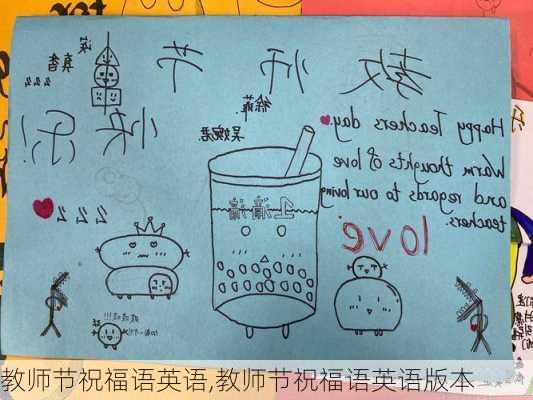 教师节
快乐!
真香
Happy Teachers day.
Warm thoughts of love
and regards to our loving
teachers.
love
222
教师节祝福语英语,教师节祝福语英语版本